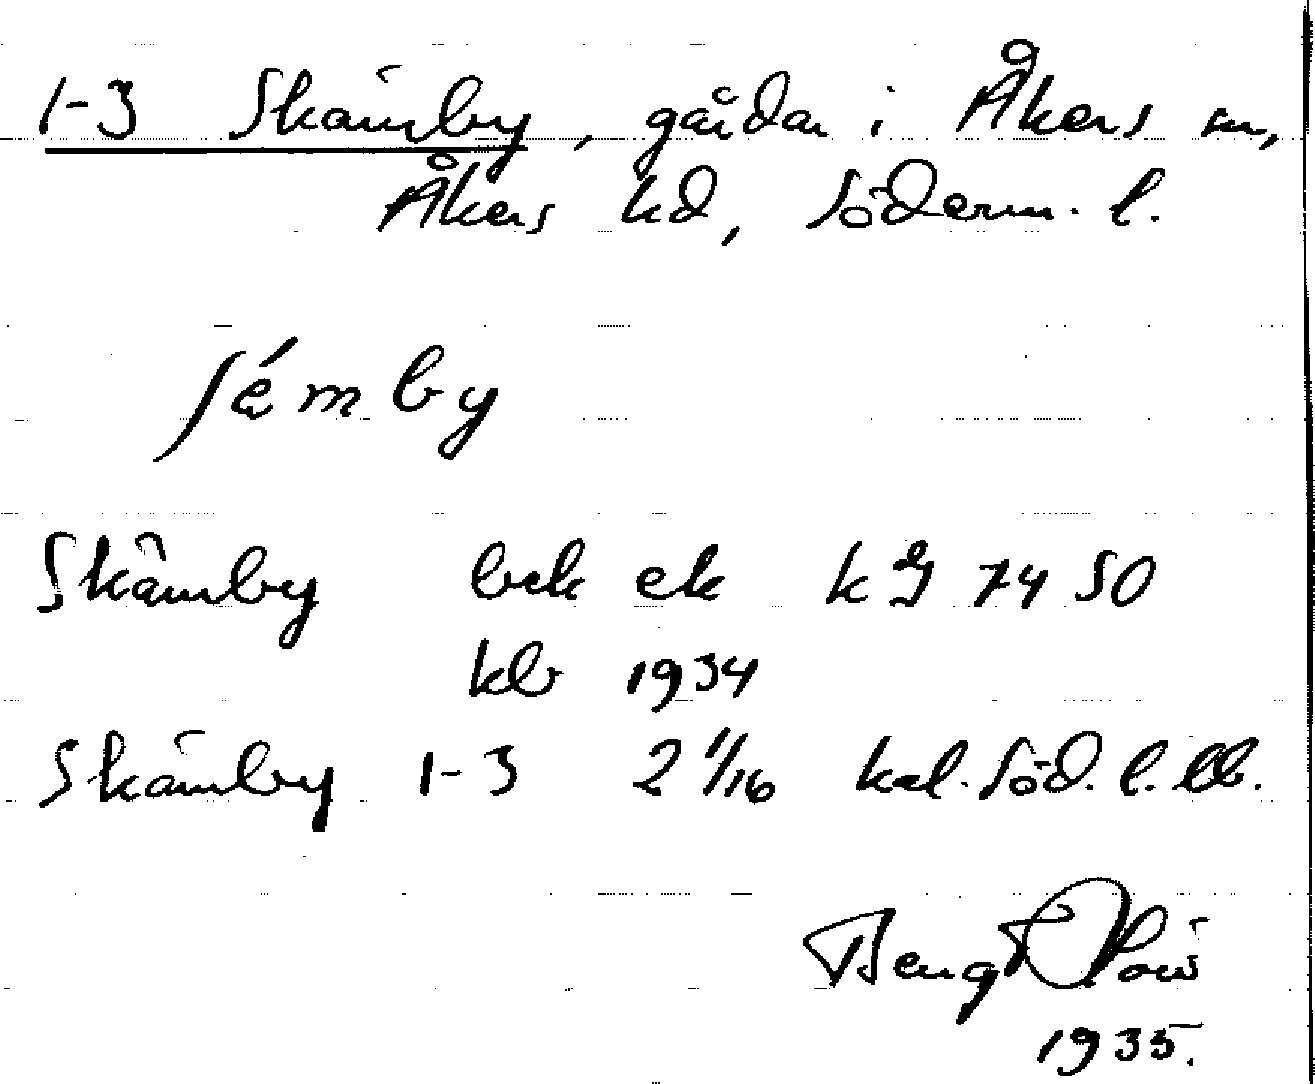 1-3 Skämby, gårdar i Åkers sn,
Åkers hd, Söderm. l.
ʃémby
Skämby bek ek kG 74 SO
kb 1934
Skämby 1-3 2 1/16 kal. Söd. l. lb.
Bengt
1935.